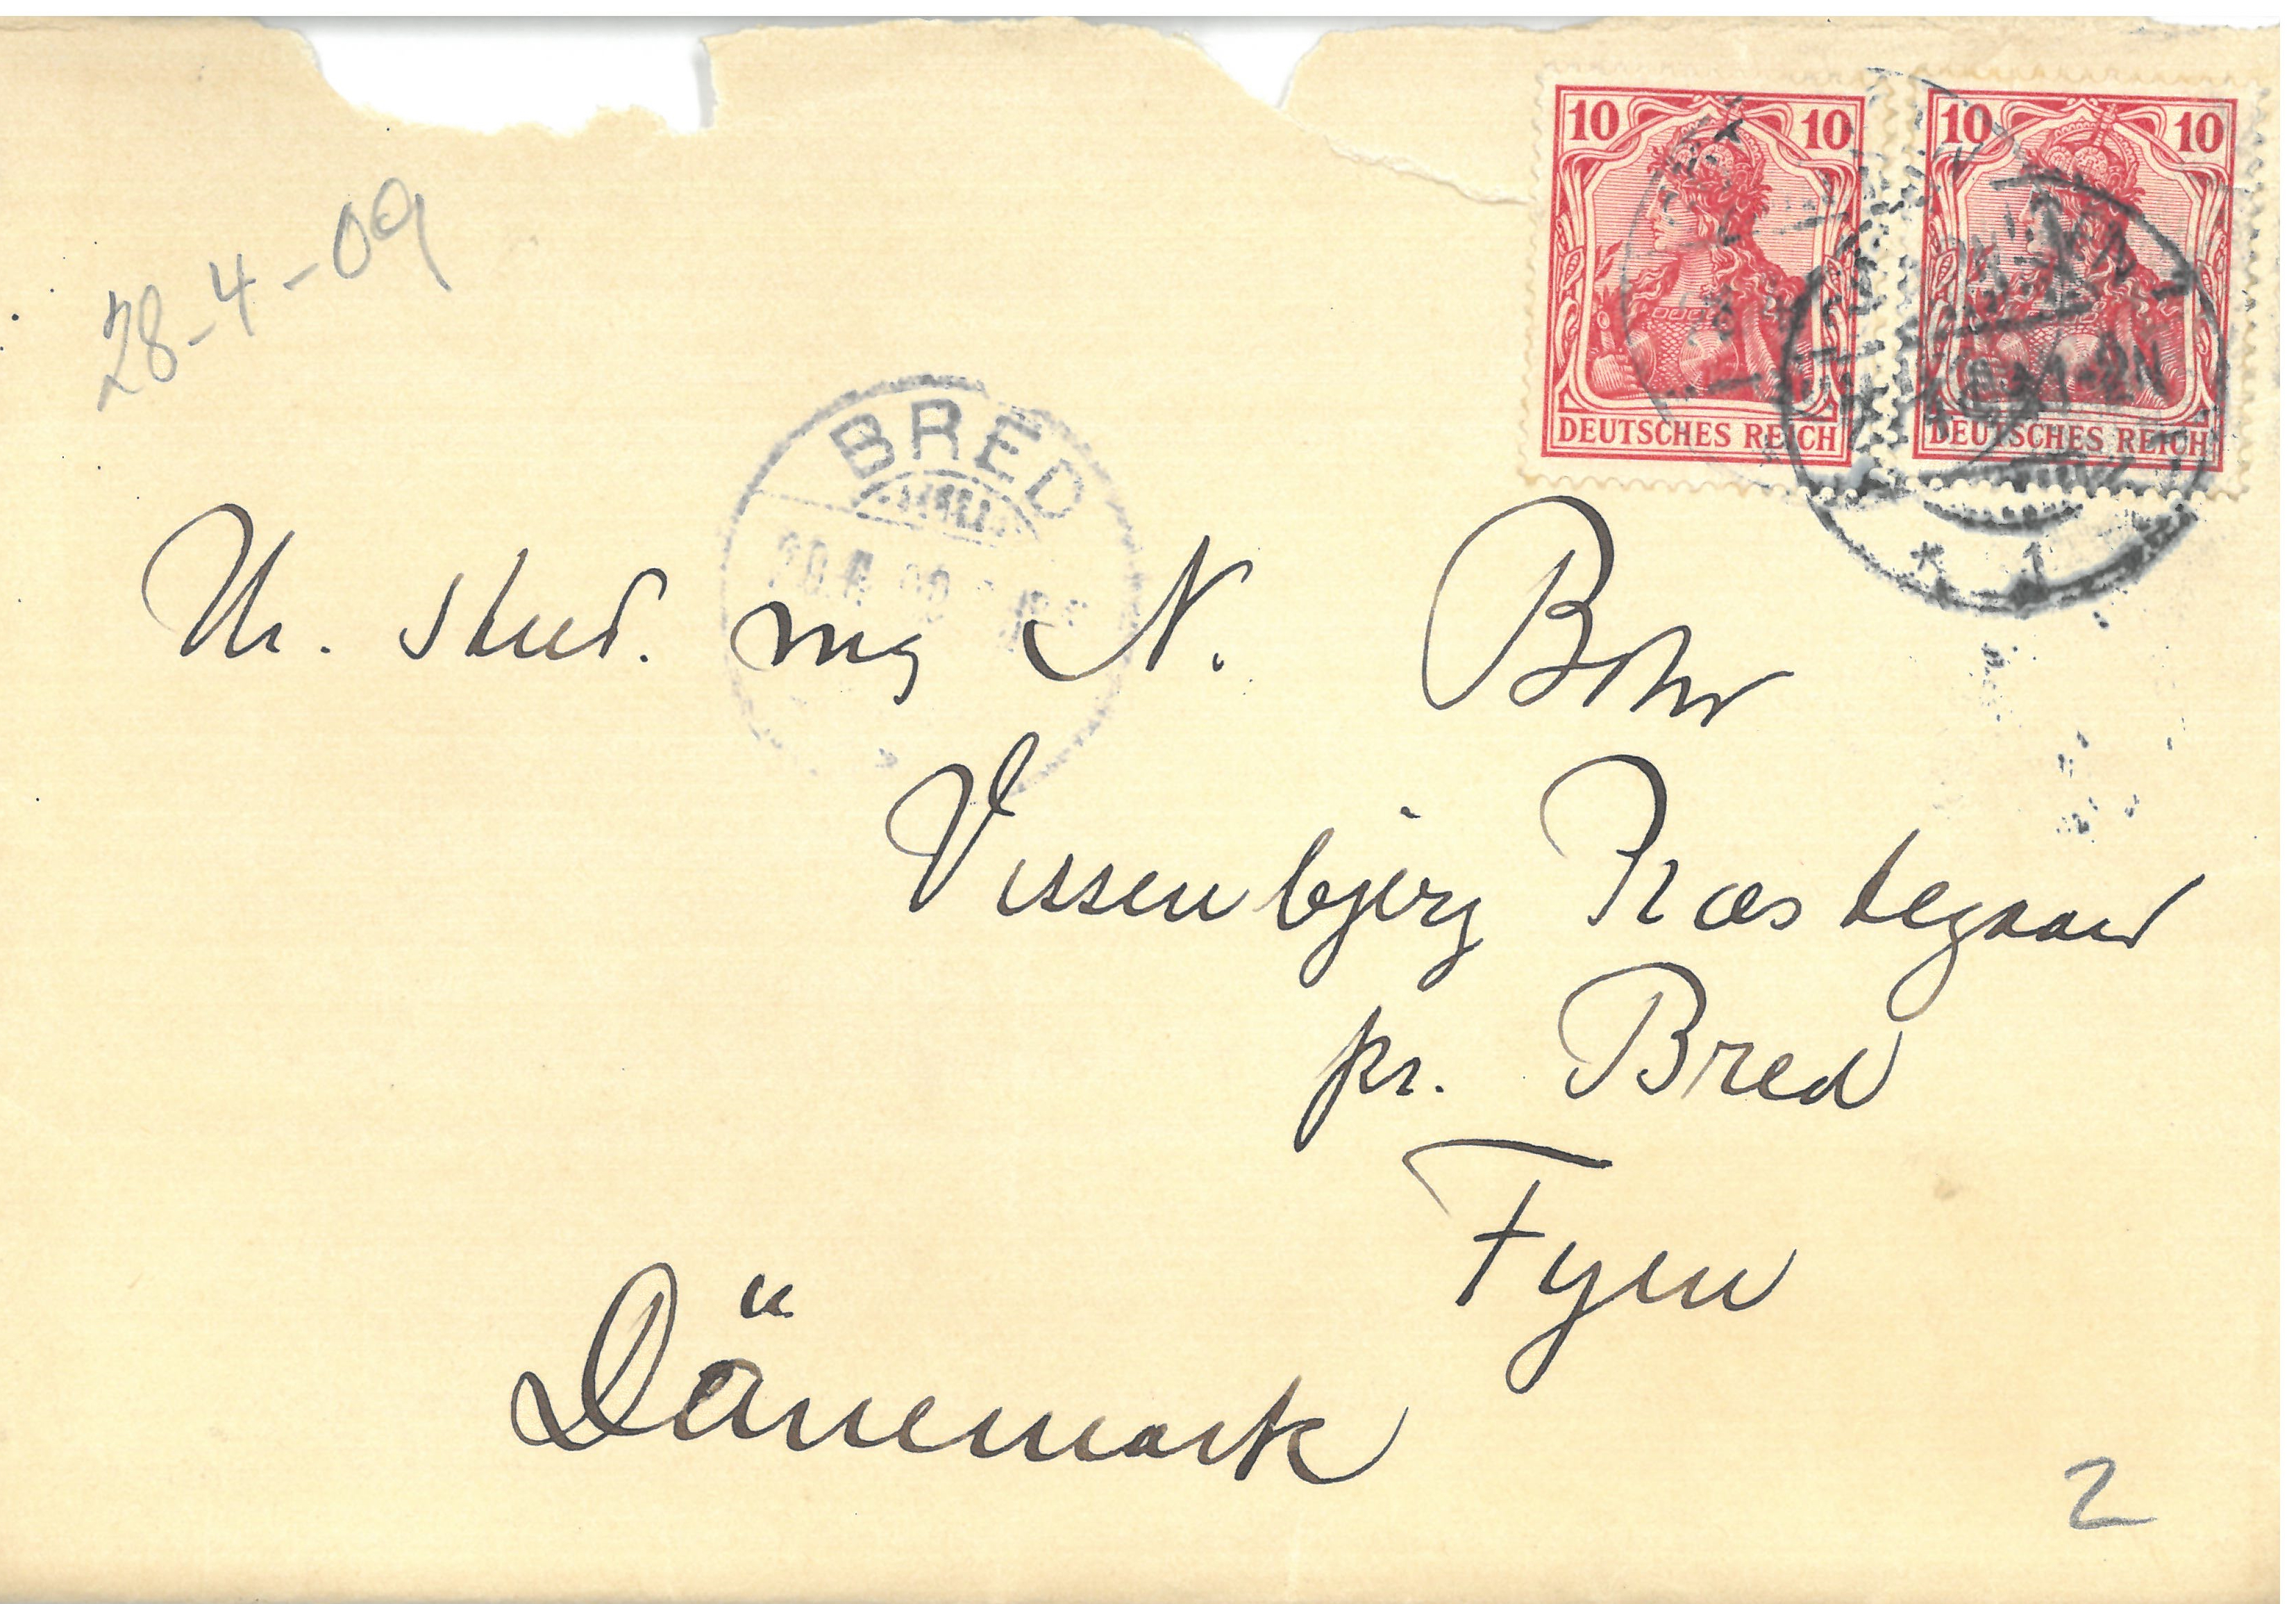 10 10 10 10
DEUTSCHES REICH DEUTSCHES REICH
28-4-09
BRED
1-2N
* 1
Hr. stud. mag N. Bohr
Vissenbjerg Præstegaard
pr. Bred
Fyen
Dänemark
2